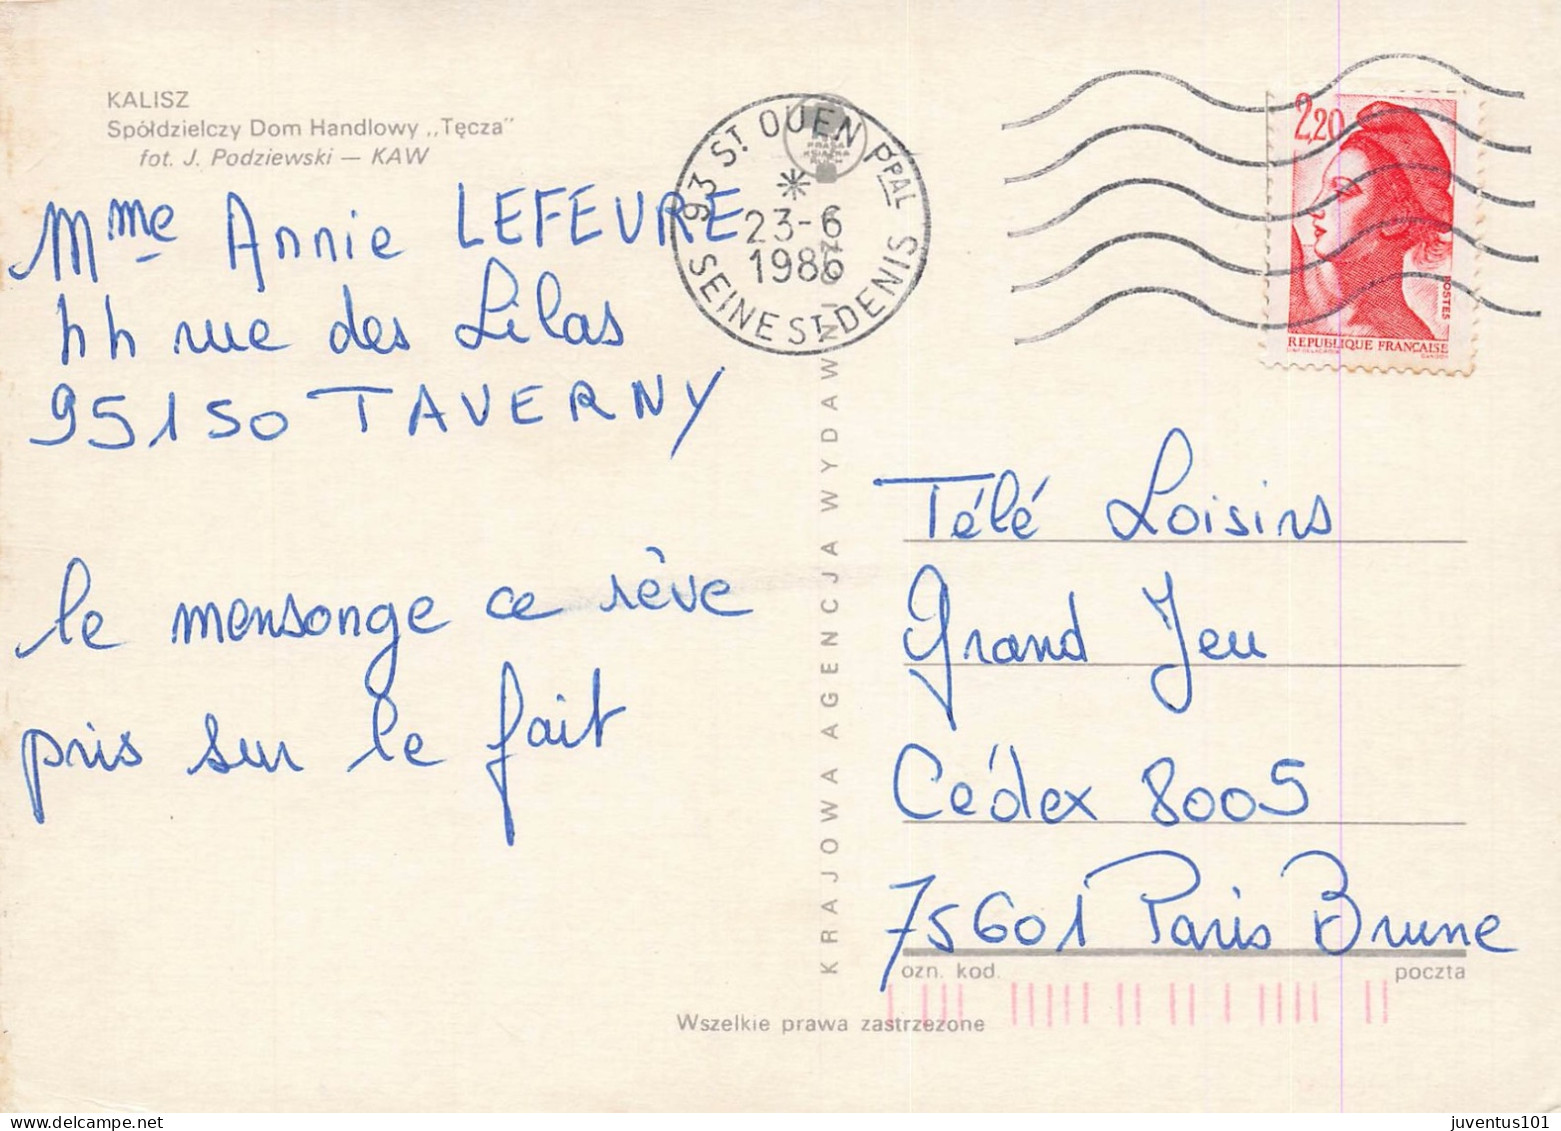 KALISZ
Spółdzielczy Dom Handlowy ,,Tęcza"
fot. J. Podziewski — KAW
Mme Annie LEFEVRE
44 rue des Lilas
95150 TAVERNY
le mensonge ce rêve
pris sur le fait
93 ST OUEN PPAL
23-6
1986
SEINE ST DENIS
PRASA
KSIĄŻKA
RUCH
KRAJOWA AGENCJA WYDAWNICZA
2,20
POSTES
REPUBLIQUE FRANÇAISE
Télé Loisirs
Grand Jeu
Cédex 8005
75601 Paris Brune
ozn. kod.
poczta
Wszelkie prawa zastrzezone
juventus101